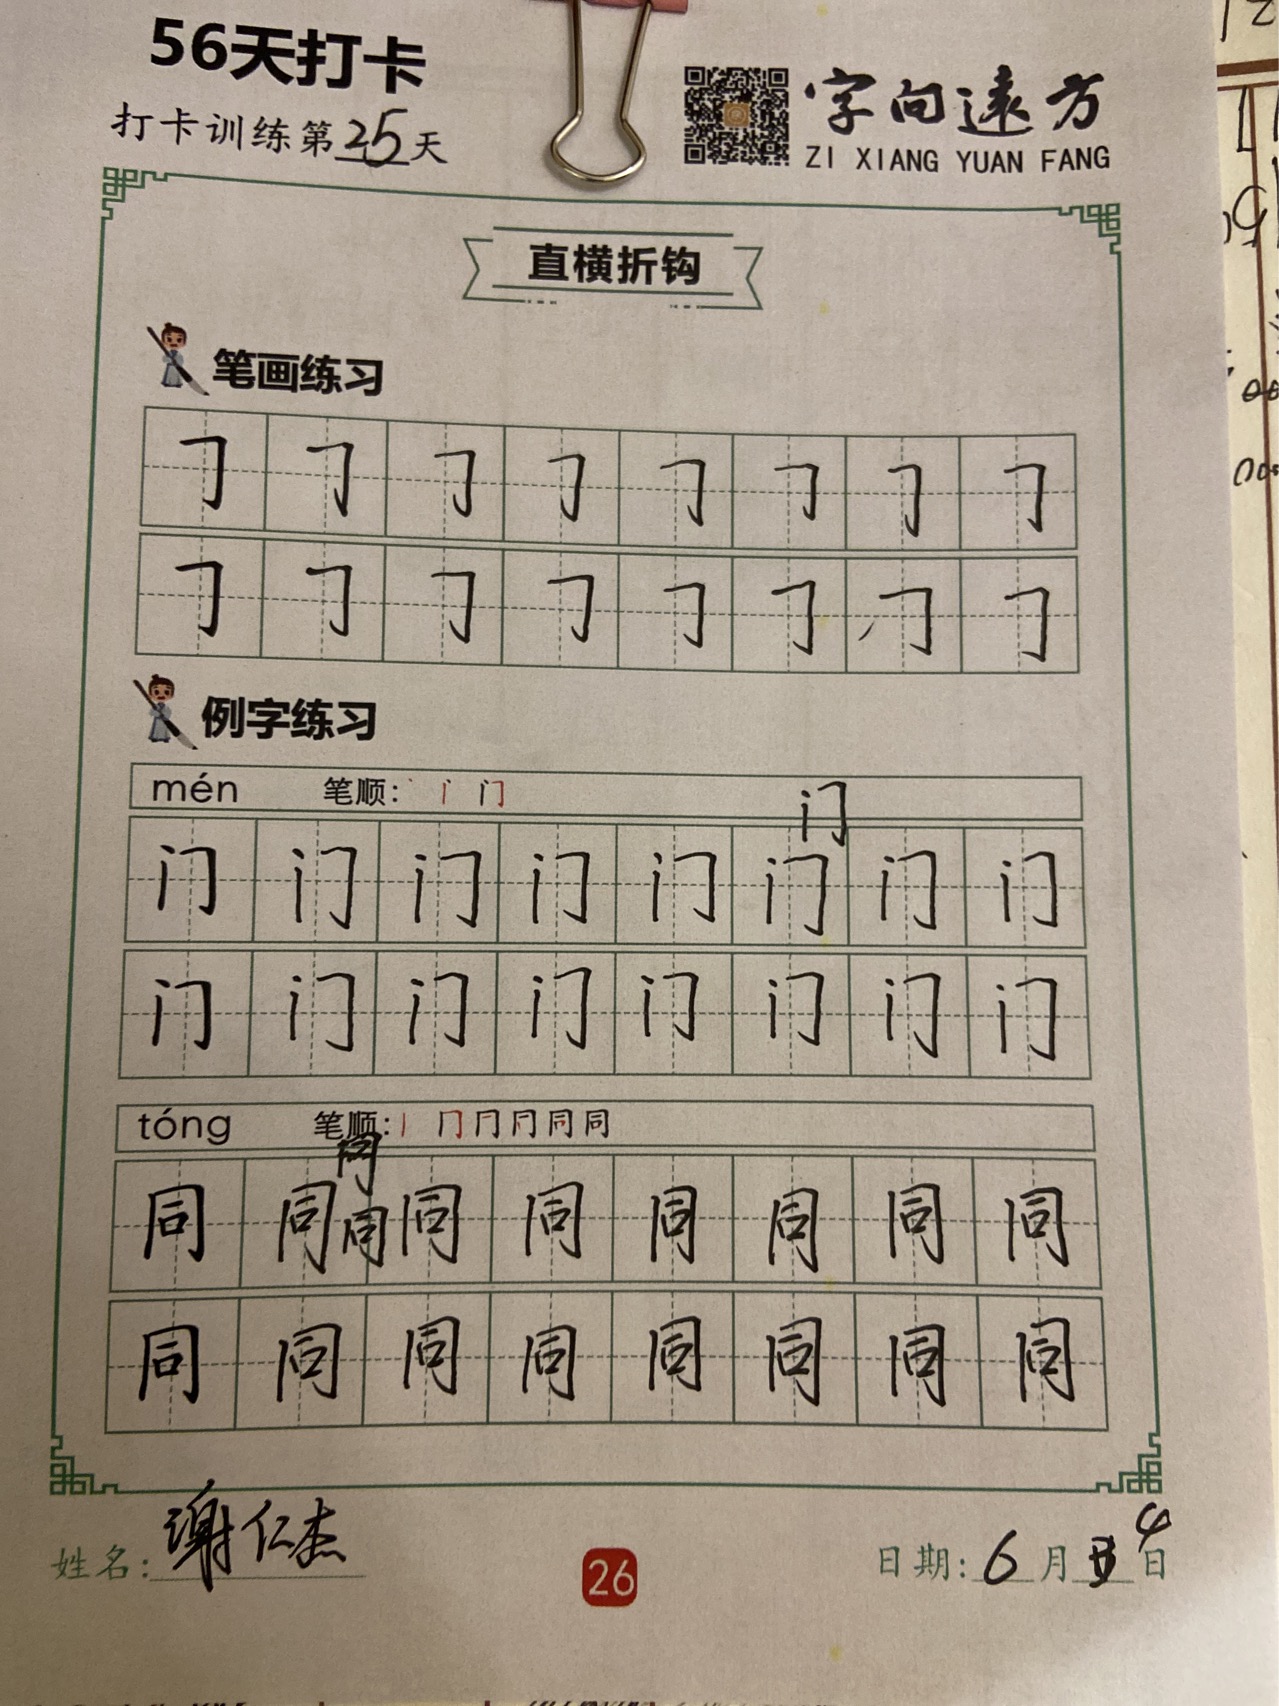 56天打卡
打卡训练第25天
字向遠方
ZI XIANG YUAN FANG
直横折钩
笔画练习
㇆ ㇆ ㇆ ㇆ ㇆ ㇆ ㇆ ㇆
㇆ ㇆ ㇆ ㇆ ㇆ ㇆ ㇆ ㇆
例字练习
mén 笔顺: 丶 门 门
门 门 门 门 门 门 门 门
门 门 门 门 门 门 门 门
tóng 笔顺: 丨 冂 同 同
同
同 同 同 同 同 同 同 同 同
同 同 同 同 同 同 同 同
姓名: 谢仁杰
26
日期: 6月4日